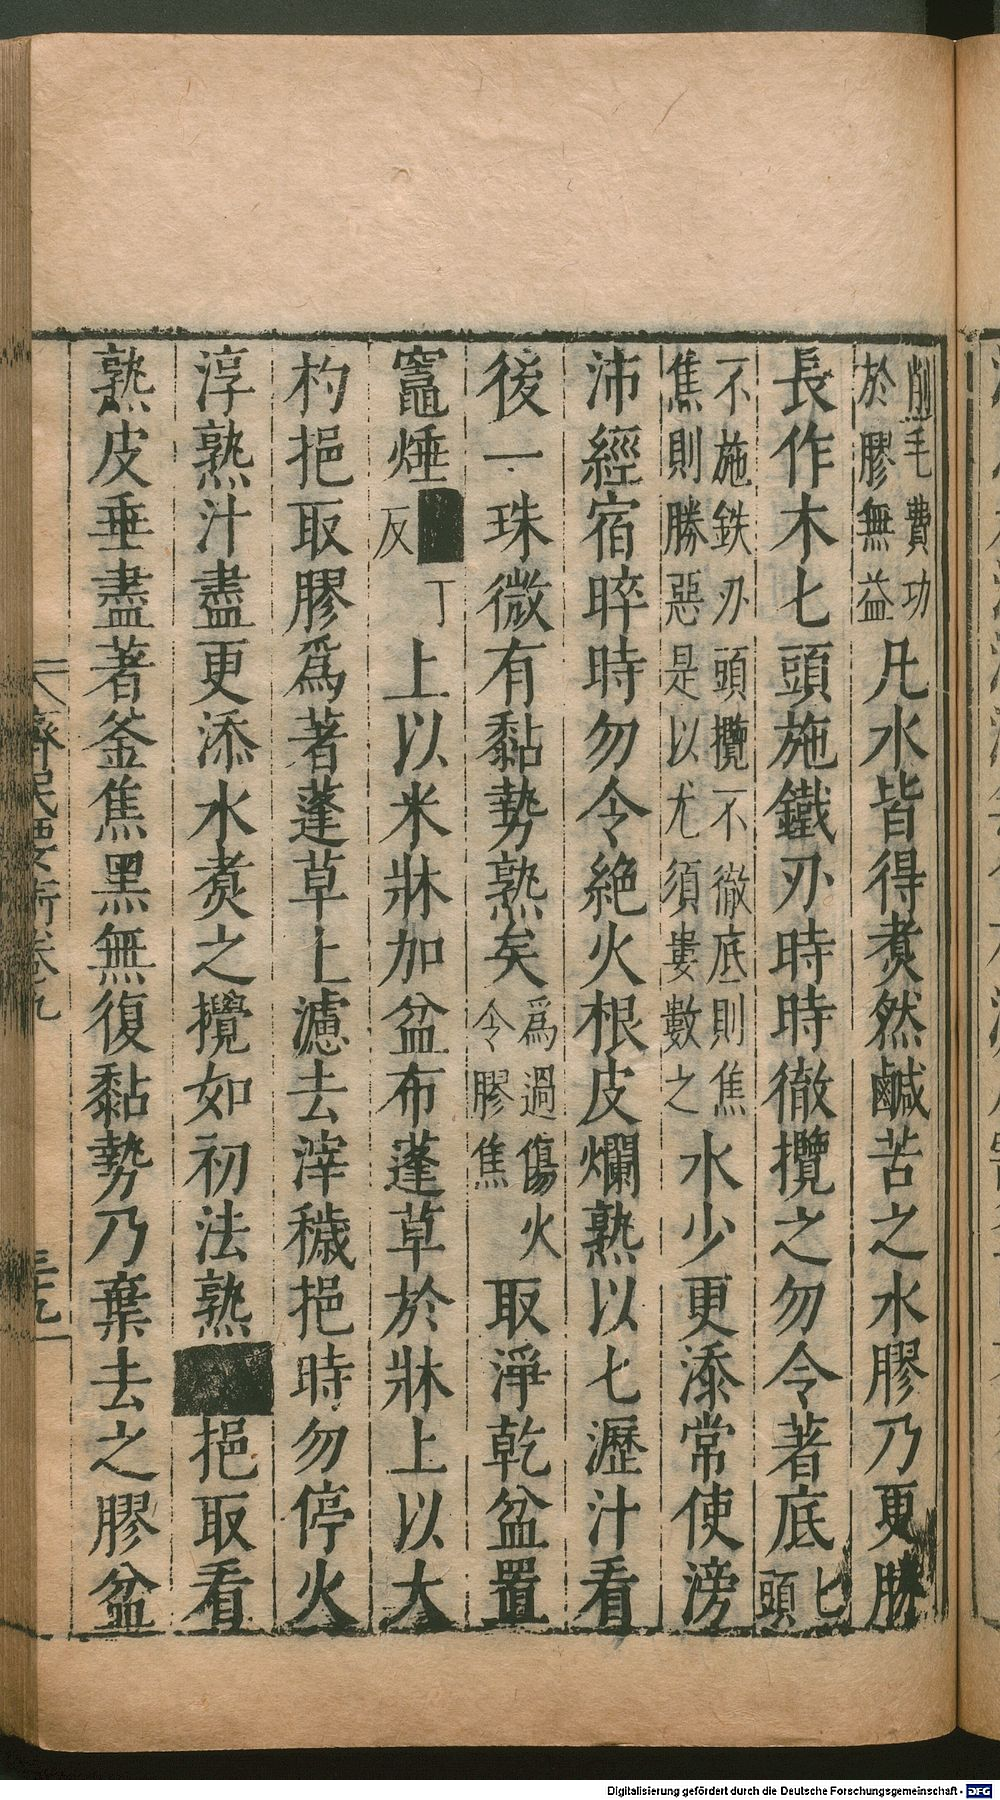 削毛費功於膠無益凡水皆得煑然鹹苦之水膠乃更勝
長作木匕頭施鐵刃時時徹攪之勿令著底匕頭
不施鉄刃頭攪不徹底則焦焦則勝惡是以尤須婁數之水少更添常使滂
沛經宿晬時勿令絶火根皮爛熟以匕瀝汁看
後一珠微有黏勢熟矣爲過傷火令膠焦取淨乾盆置
竈煄■丁反上以米牀加盆布蓬草於牀上以大
杓挹取膠爲著蓬草上濾去滓穢挹時勿停火
淳熟汁盡更添水煑之攪如初法熟■挹取看
熟皮垂盡著釜焦黑無復黏勢乃棄去之膠盆
齊民要術卷九
三十九
Digitalisierung gefördert durch die Deutsche Forschungsgemeinschaft - DFG